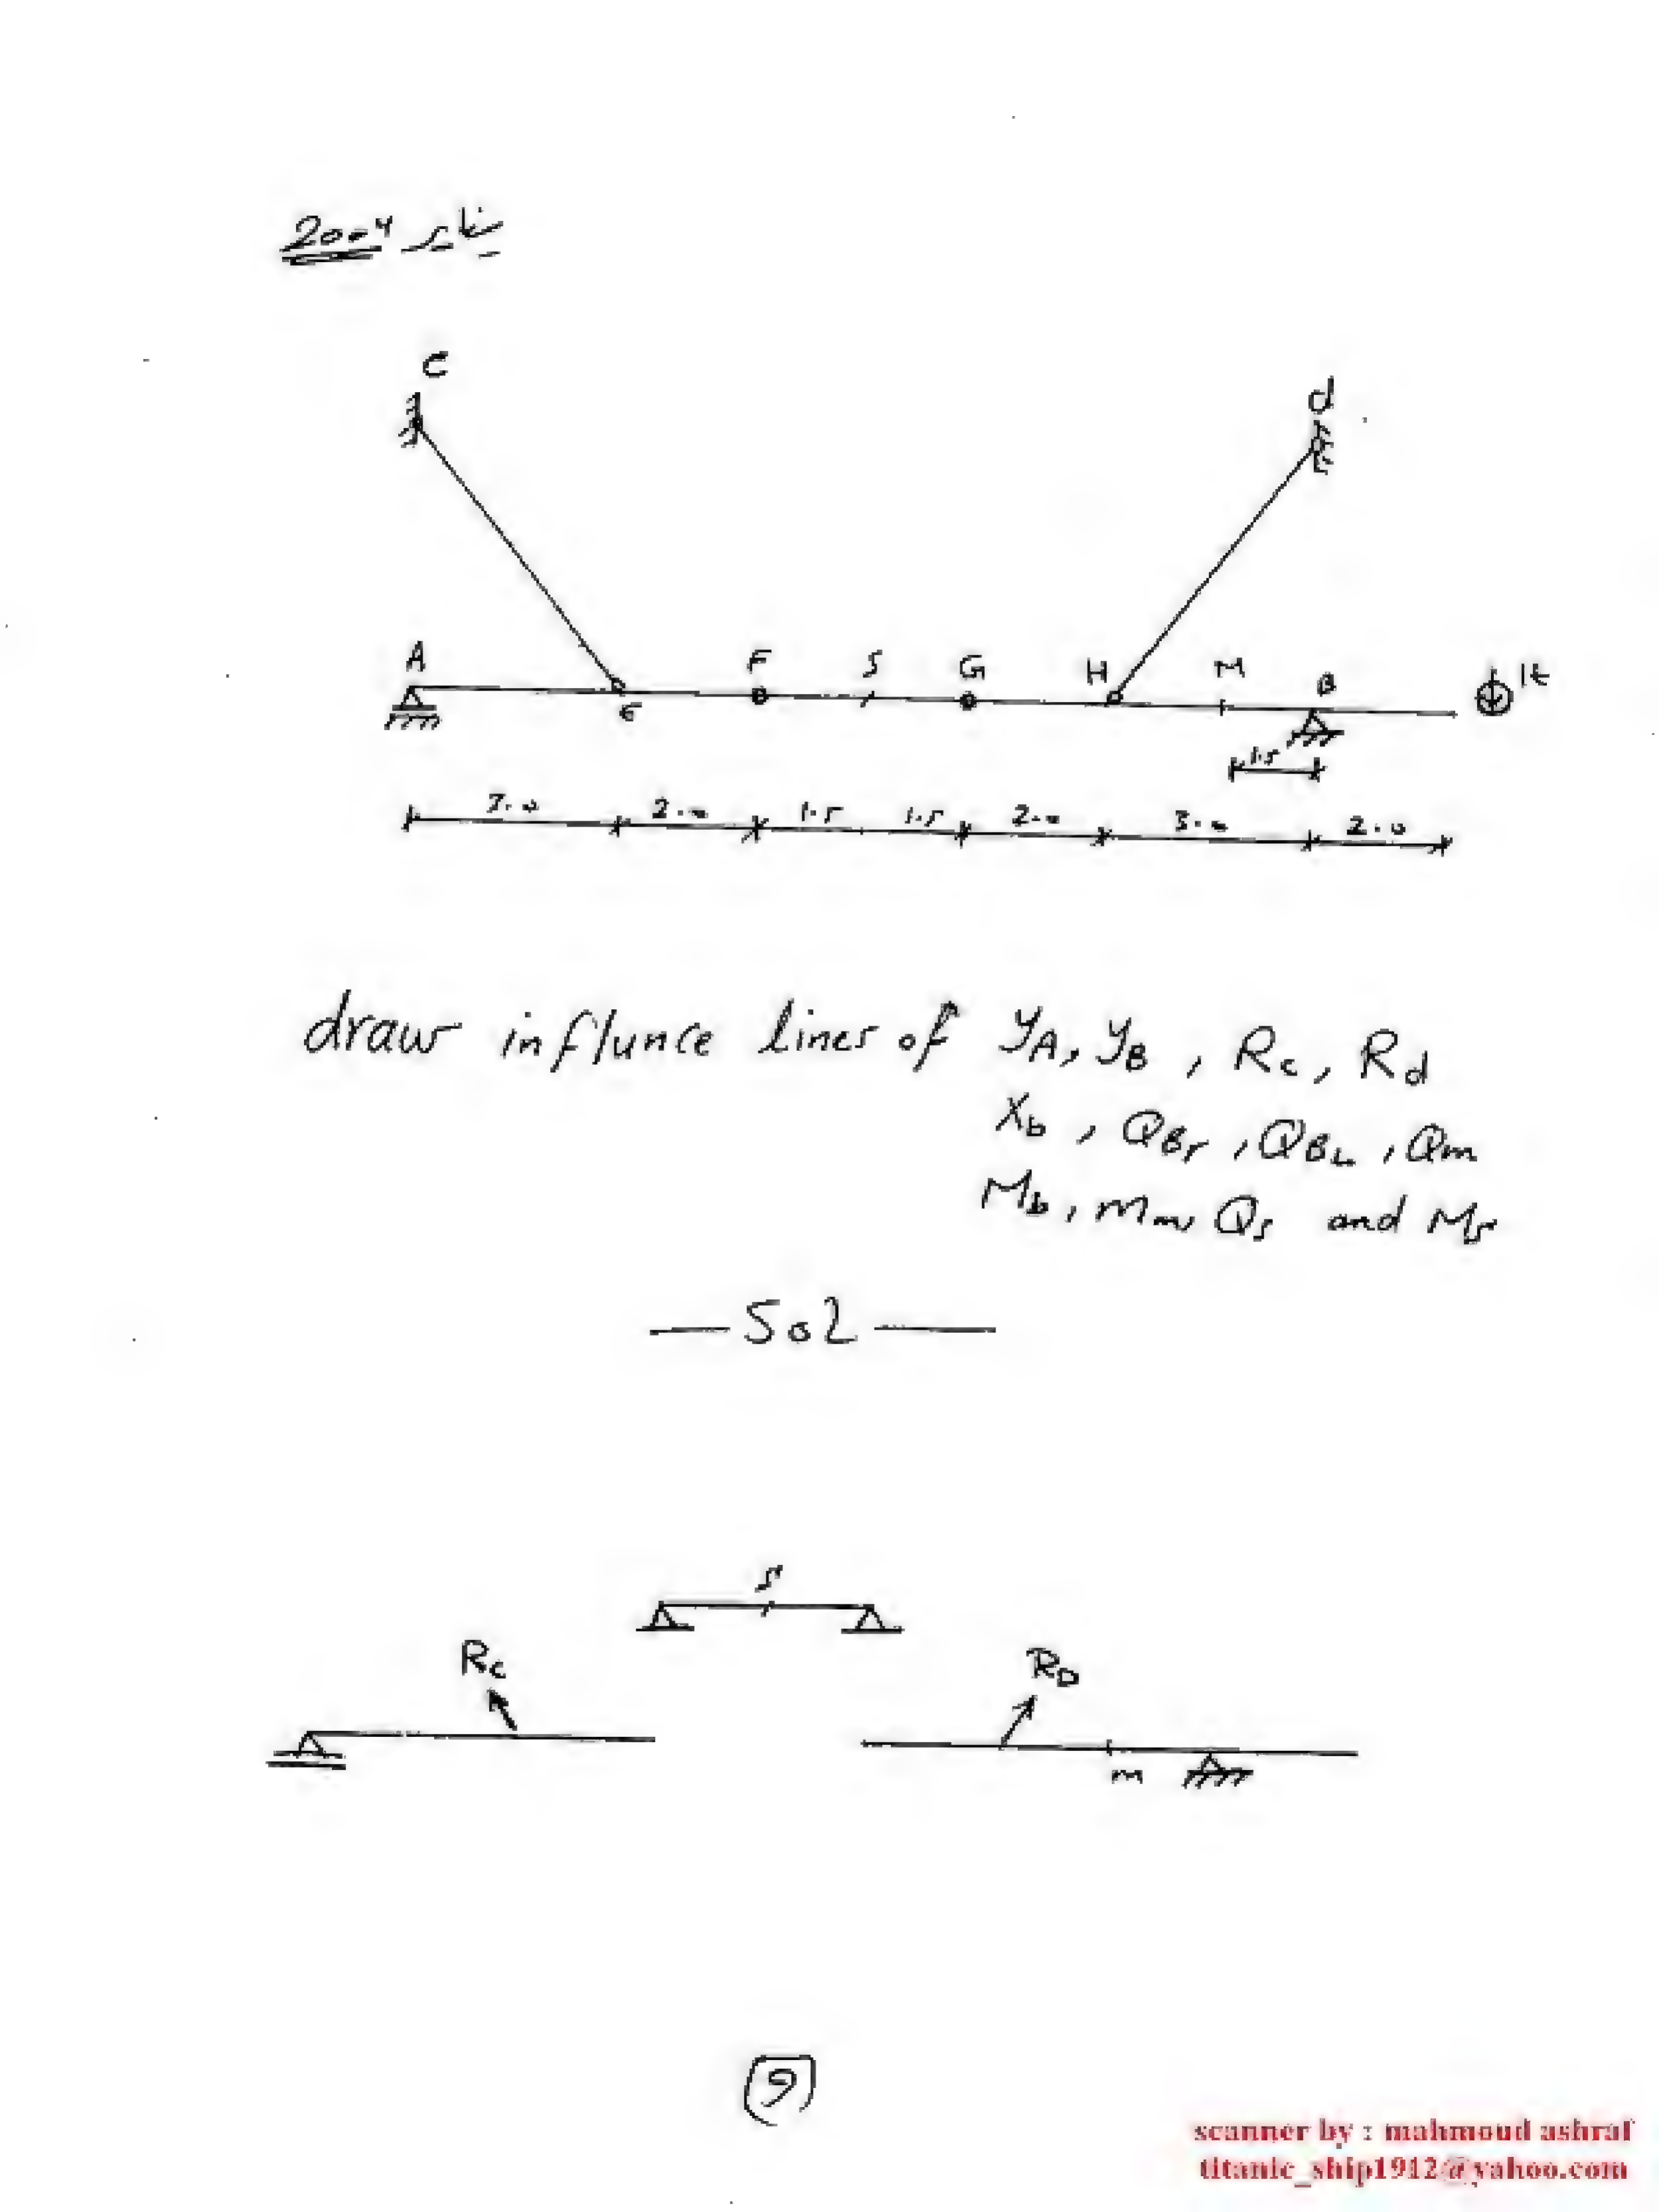 2004
C
d
A
F
S
G
H
M
B
1t
E
1.5
3.0 2.0 1.5 1.5 2.0 3.0 2.0
draw influnce lines of YA, YB, Rc, Rd
Xb, QBr, QBL, Qm
Mb, Mm, Qs and Ms
Sol
S
Rc
RD
m
9
scanner by : mahmoud ashraf
titanic_ship1912@yahoo.com